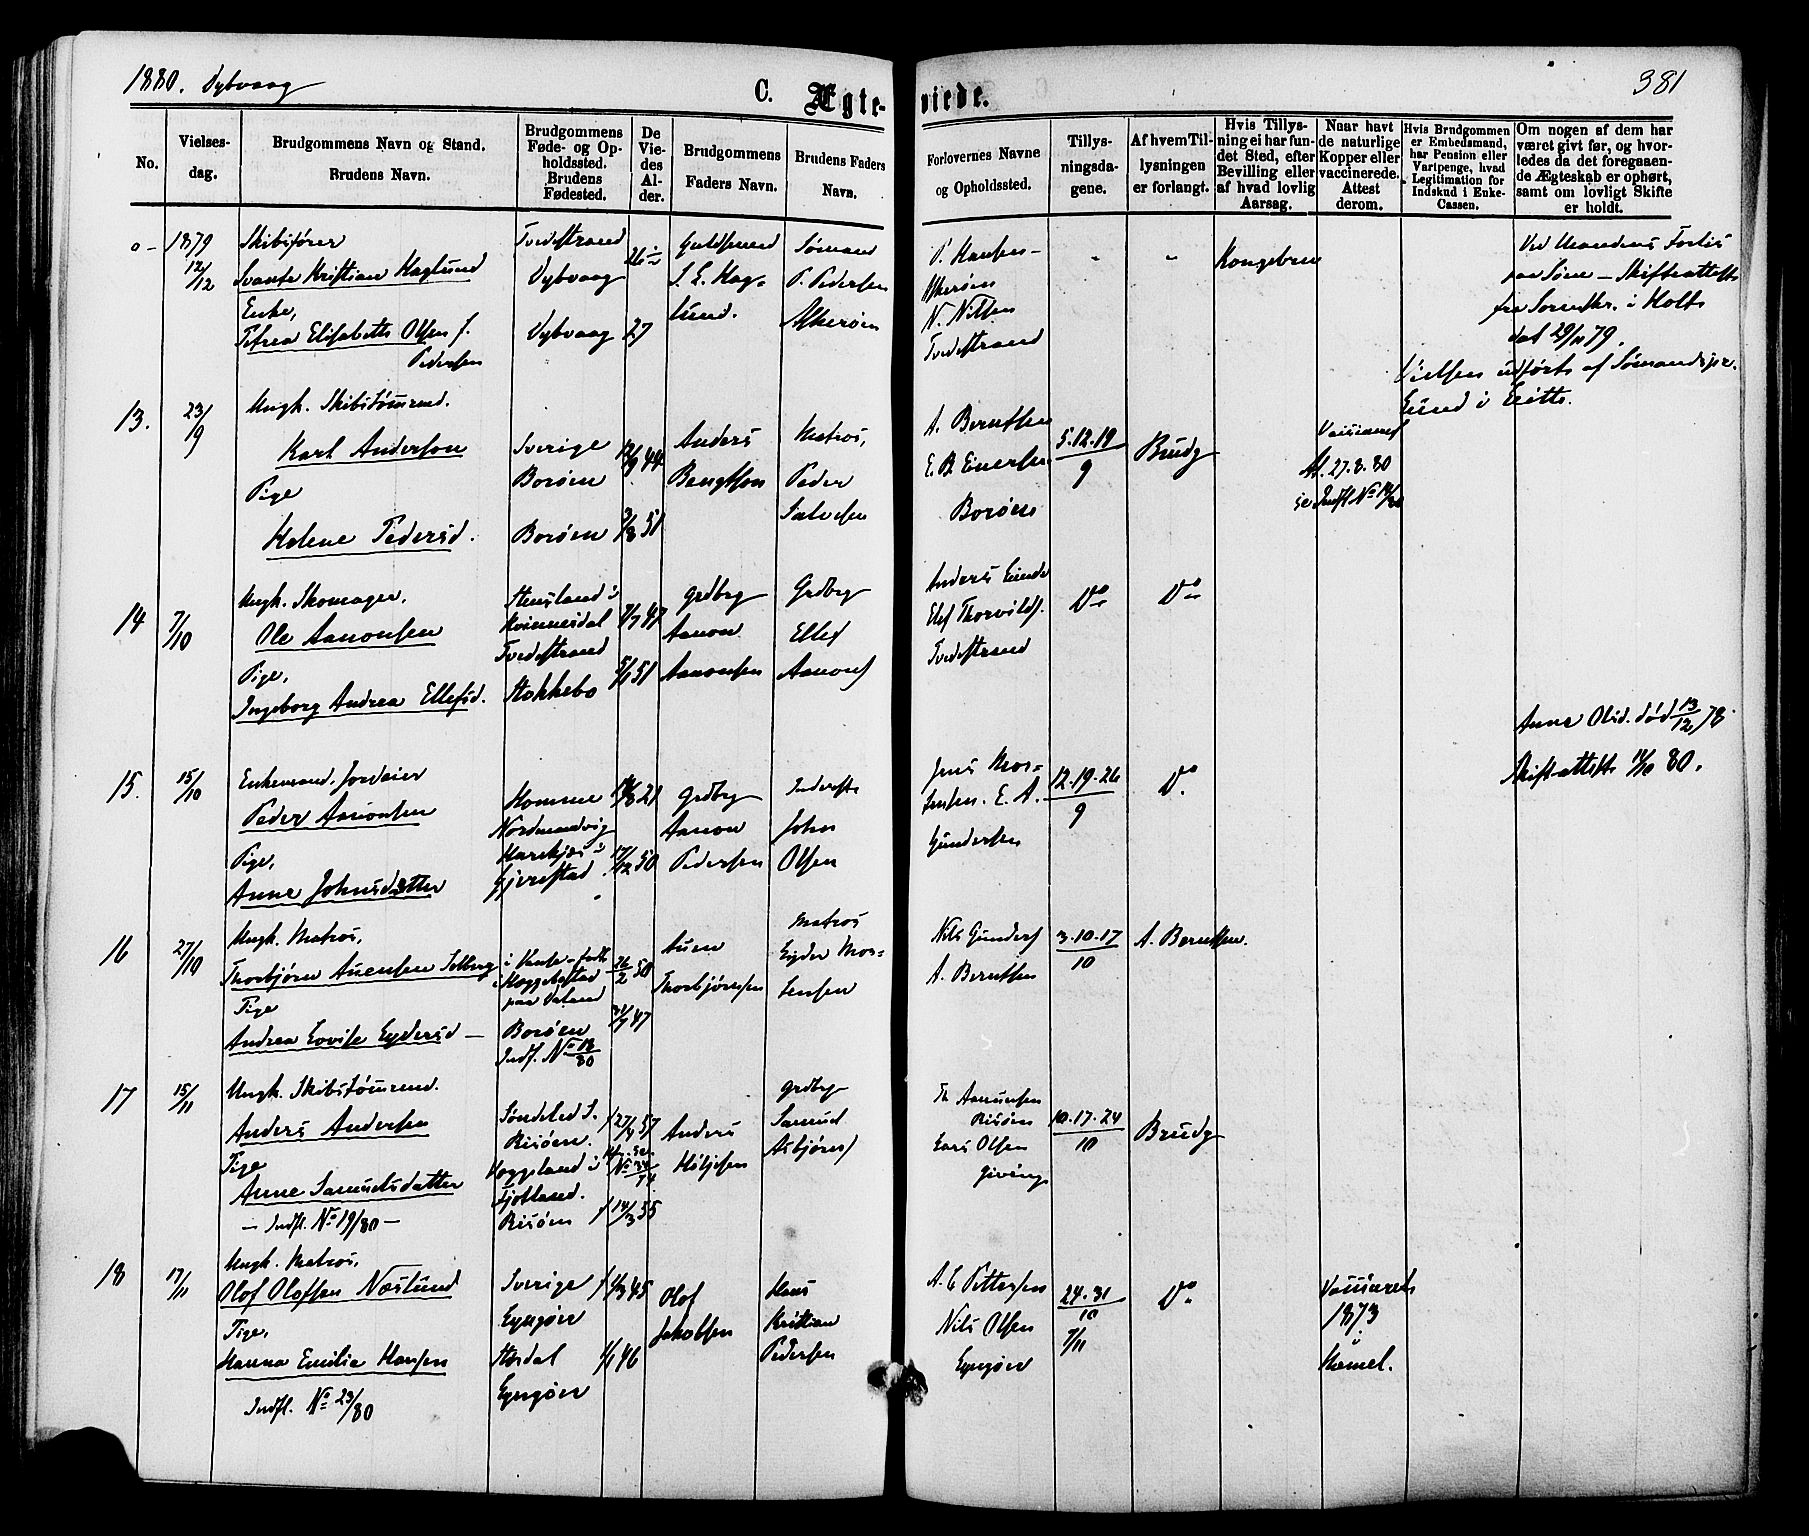 1880. Dybvaag
C. Ægteviede.
381
No.
Vielsesdag.
Brudgommens Navn og Stand.
Brudens Navn.
Brudgommens Føde- og Opholdssted.
Brudens Fødested.
De Viedes Alder.
Brudgommens Faders Navn.
Brudens Faders Navn.
Forlovernes Navne og Opholdssted.
Tillysningsdagene.
Af hvem Tillysningen er forlangt.
Hvis Tillysning ei har fundet Sted, efter Bevilling eller af hvad lovlig Aarsag.
Naar havt de naturlige Kopper eller vaccinerede. Attest derom.
Hvis Brudgommen er Embedsmand, har Pension eller Vartpenge, hvad Legitimation for Indskud i Enke-Cassen.
Om nogen af dem har været givt før, og hvorledes da det foregaaende Ægteskab er ophørt, samt om lovligt Skifte er holdt.
o-
1879
12/12
Skibsfører
Svante Kristian Haglund
Enke,
Petrea Elisabeth Olsen f.
Pedersen
Tvedestrand
Dybvaag
Dybvaag
26
27
Guldsmed
S. E. Haglund.
Sømand
P. Pedersen
Askerøen
P. Hansen
Askerøen
N. Nilsen
Tvedestrand
Kongebrev
Ved Mandens Forlis
paa Søen - Skifteattest
fra Sorenskr. i Holt
dat 29/11 79.
Vielsen udført af Sømandspr.
Lund i Leith.
13.
23/9
Ungk. Skibstømmd.
Karl Anderson
Pige
Helene Pedersd.
Sverige
Borøen
Borøen
12/9 44
3/8 51
Anders
Bengtson
Matros,
Peder
Salvesen
A. Berntsen
E. B. Einersen
Borøen
5.12.19/9
Brudg
Vaccineret
At. 27.8.80
se Indfl No 14/80
14
7/10
Ungk. Skomager,
Ole Aanonsen
Pige,
Ingeborg Andrea Ellefsd.
Stensland i
Kvinnesdal
Tvedestrand
Stokkebo
7/7 47
5/1 51
Grdbrg
Aanon
Aanonsen
Grdbrg
Ellef
Aanons
Anders Lunde
Elef Thorvilds.
Tvedestrand
Do
Do
15.
15/10
Enkemand, Jordeier
Peder Aanonsen
Pige,
Anne Johnsdatter
Homme
Nordmandvig
Gjerestad
14/8 21
17/12 50
Grdbrg
Aanon
Pedersen
Inderst
John
Olsen
Jens Mortensen. E. A.
Gundersen
12.19.26/9
Do.
Anne Olsd. død 13/12 78
Skifteattest 11/10 80.
16
27/10
Ungk. Matros,
Thorbjørn Auensen Selberg
Pige
Andrea Lovise Eydersd -
paa Valand
Borøen
Indf. No 18/80
26/2 50
47
Auen
Thorbjørnsen
Matros
Eyder Mortensen
Nils Gunders
A. Berntsen
3.10.17/10
A. Berntsen.
17
15/11
Ungk. Skibstømmd.
Anders Andersen
Pige
Anne Samuelsdatter
- Indfl. No 19/80 -
Søndeled S.
Risøen.
Hoggeland i
Fjotland.
Risøen
27/4 57
14/3 55
Anders
Grdbrg
Samuel
Asbjørns
Th Aanunsen
Risøen
Lars Olsen
Giving
10.17.24/10
Brudg
18
17/11
Ungk. Matros,
Olof Olofsen Næslund
Pige,
Hanna Emilie Hansen
Indfl. No 23/80
Sverige
Lyngøer
Lyngøer
4/3 45
4/1 46
Olof
Jakobsen
Hans
Kristian
Pedersen
A. E Pettersen
Nils Olsen
Lyngøer
24.31/10
7/11
Do.
Vaccineret
1873
i
Hamel.